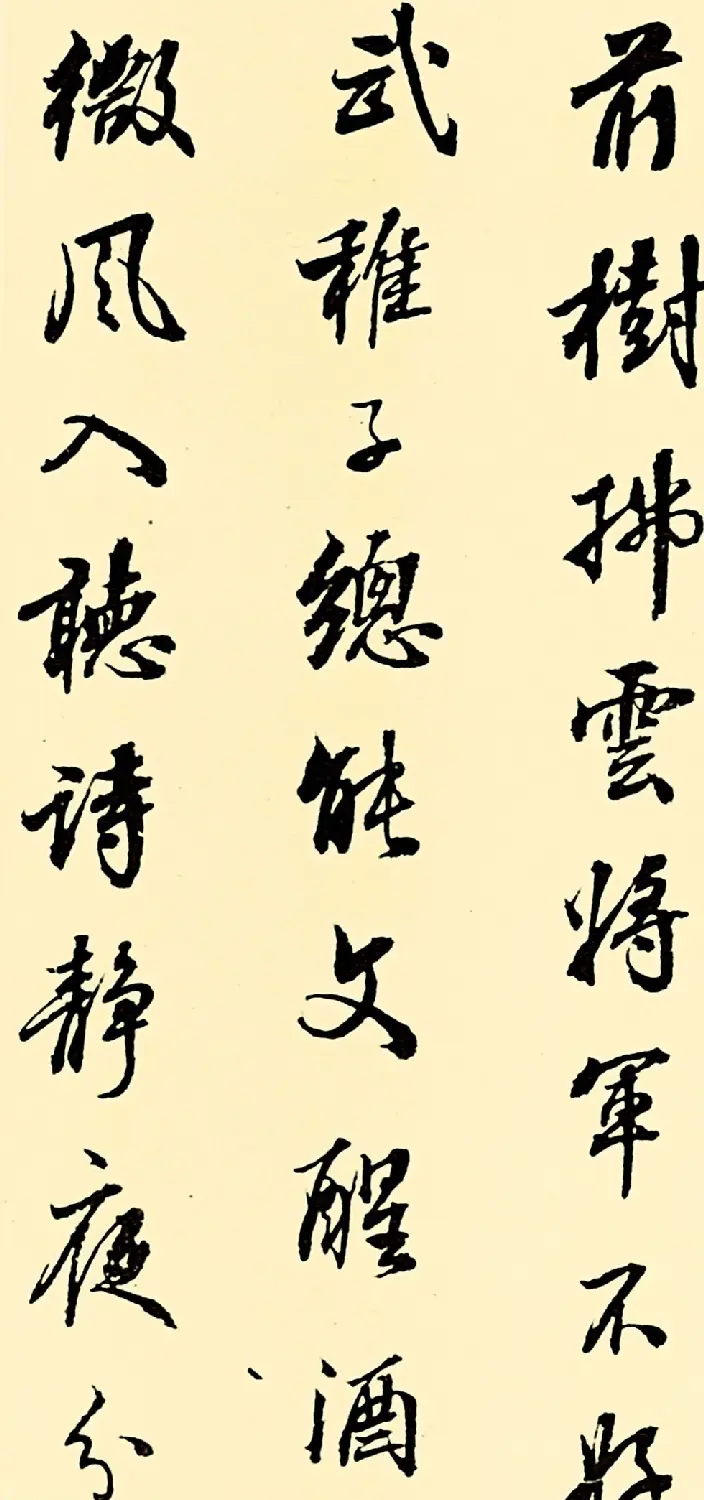 前樹拂雲將軍不好
武稚子總能文醒酒
微風入聽詩靜夜分